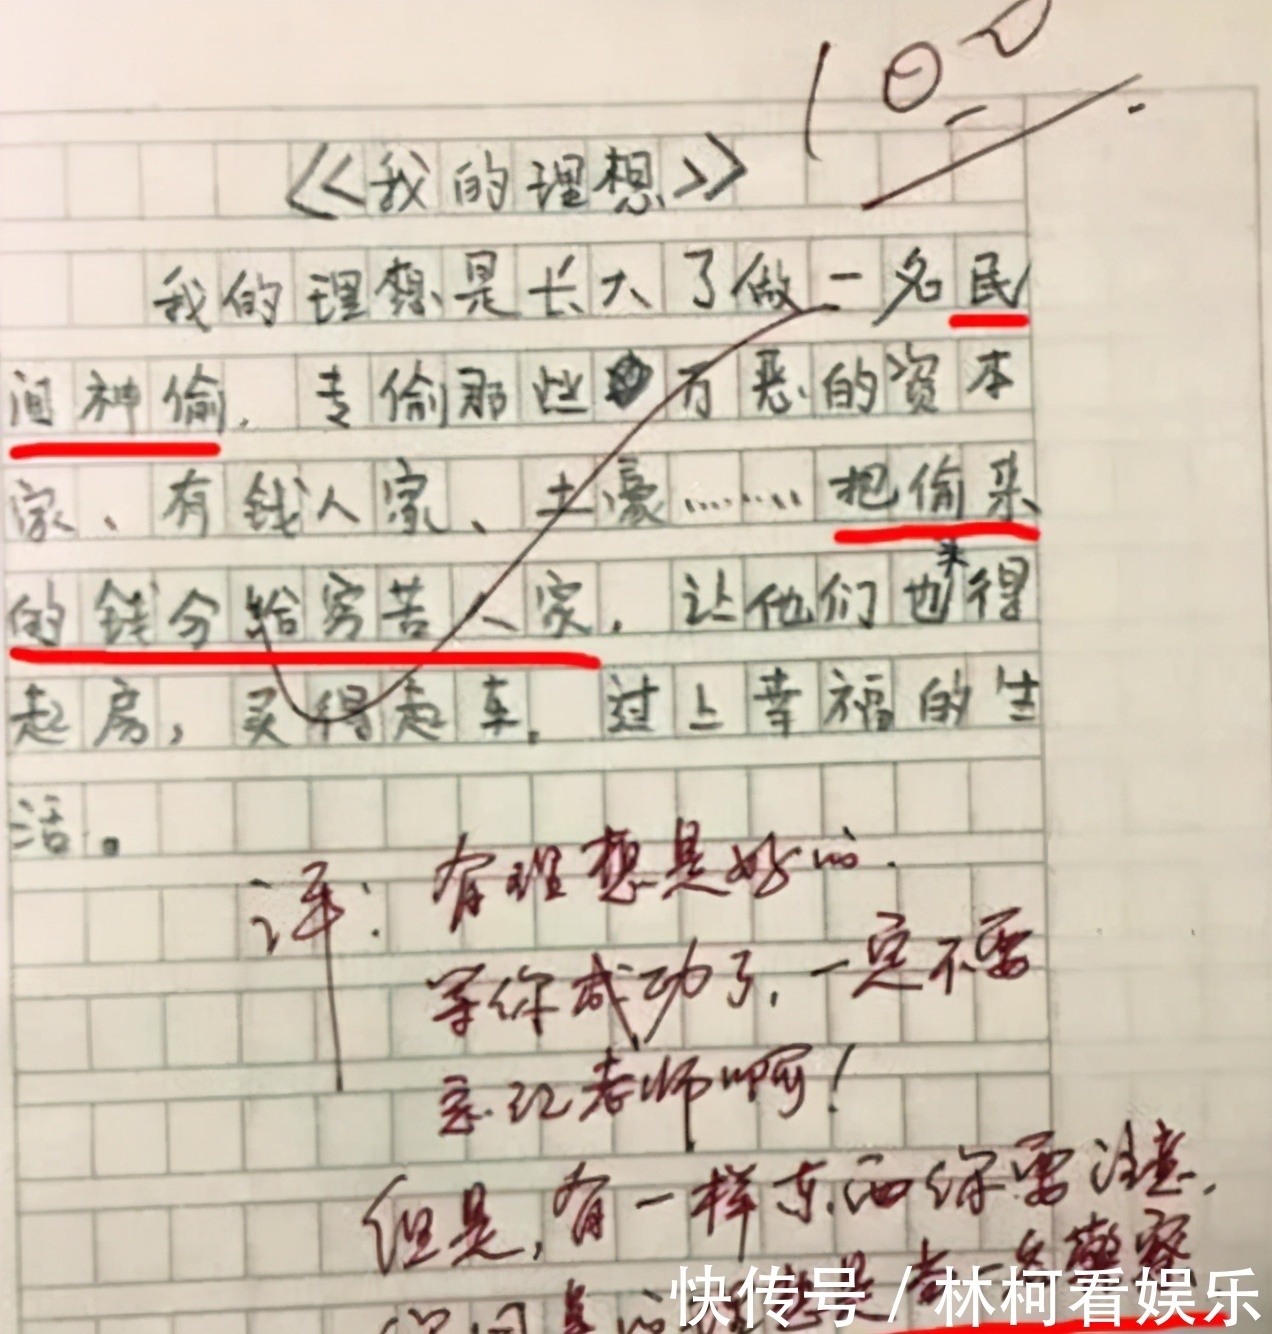 100
《我的理想》
我的理想是长大了做一名民
间神偷.专偷那些万恶的资本
家、有钱人家、土豪………把偷来
的钱分给穷苦人家.让他们也买得
起房,买得起车.过上幸福的生
活。
评:有理想是好的.
等你成功了,一定不要
忘记老师啊!
但是,有一样东西你要注意,
你同桌的理想是当一名警察
快传号/林柯看娱乐